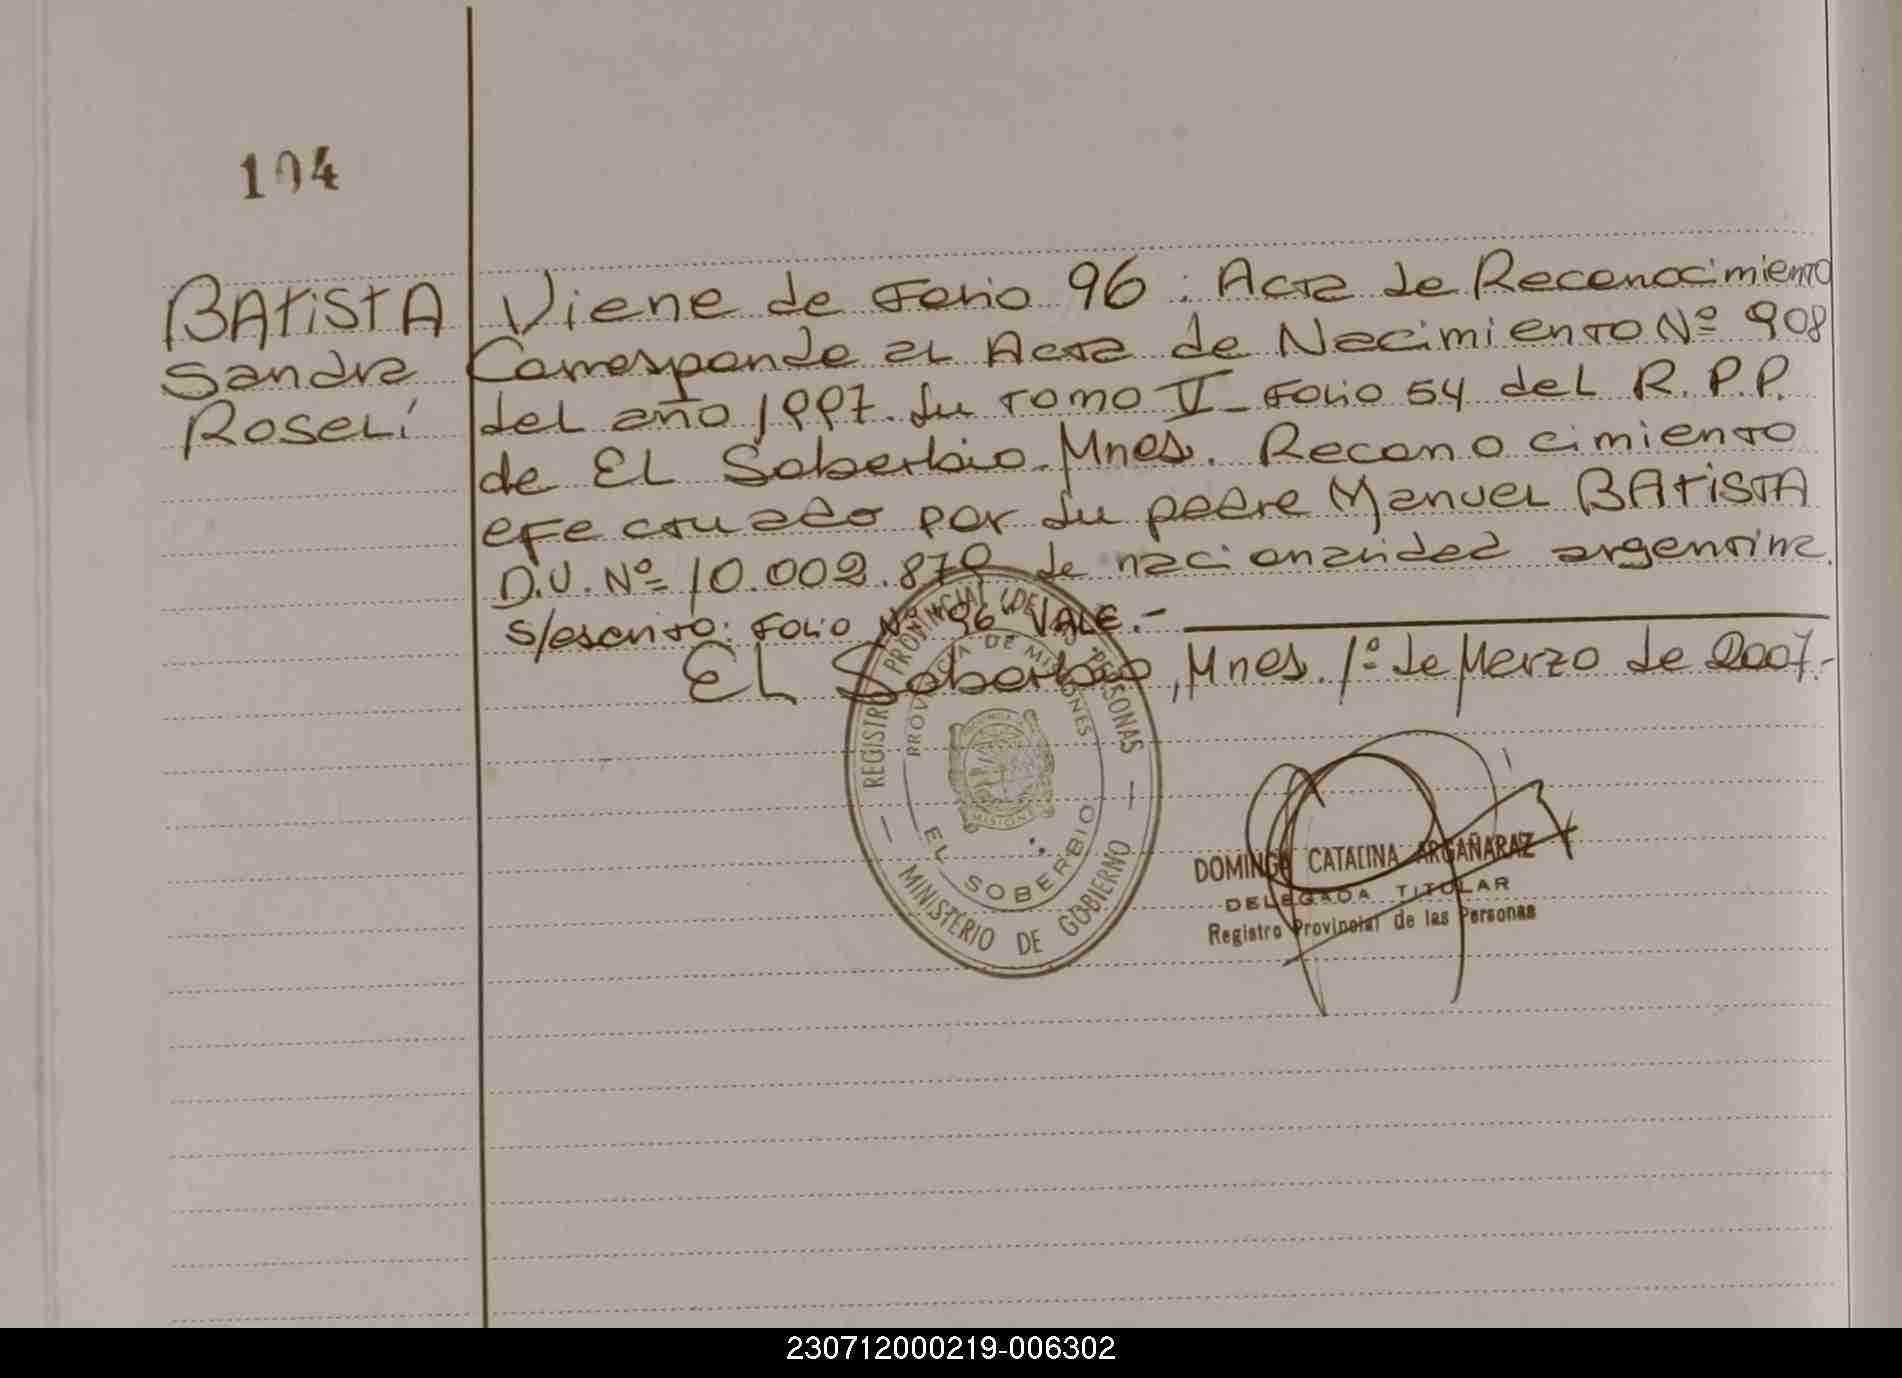 104
BATISTA
Sandra
Roselí
Viene de Folio 96 : Acta de Reconocimiento
Corresponde al Acta de Nacimiento Nº 908
del año 1997. Su Tomo V - Folio 54 del R.P.P.
de El Soberbio - Mnes. Reconocimiento
efectuado por su padre Manuel BATISTA
D.U. Nº 10.002.879 de nacionalidad argentina.
s/escrito: Folio Nº "96" VALE.-
El Soberbio, Mnes. 1º de Marzo de 2007.-
REGISTRO PROVINCIAL DE LAS PERSONAS
PROVINCIA DE MISIONES
MISIONES
EL SOBERBIO
MINISTERIO DE GOBIERNO
DOMINGA CATALINA ARGAÑARAZ
DELEGADA TITULAR
Registro Provincial de las Personas
230712000219-006302